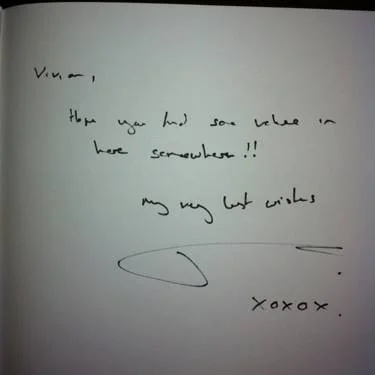 Vivian,
Hope you find some value in
here somewhere!!
My very best wishes
xoxox.